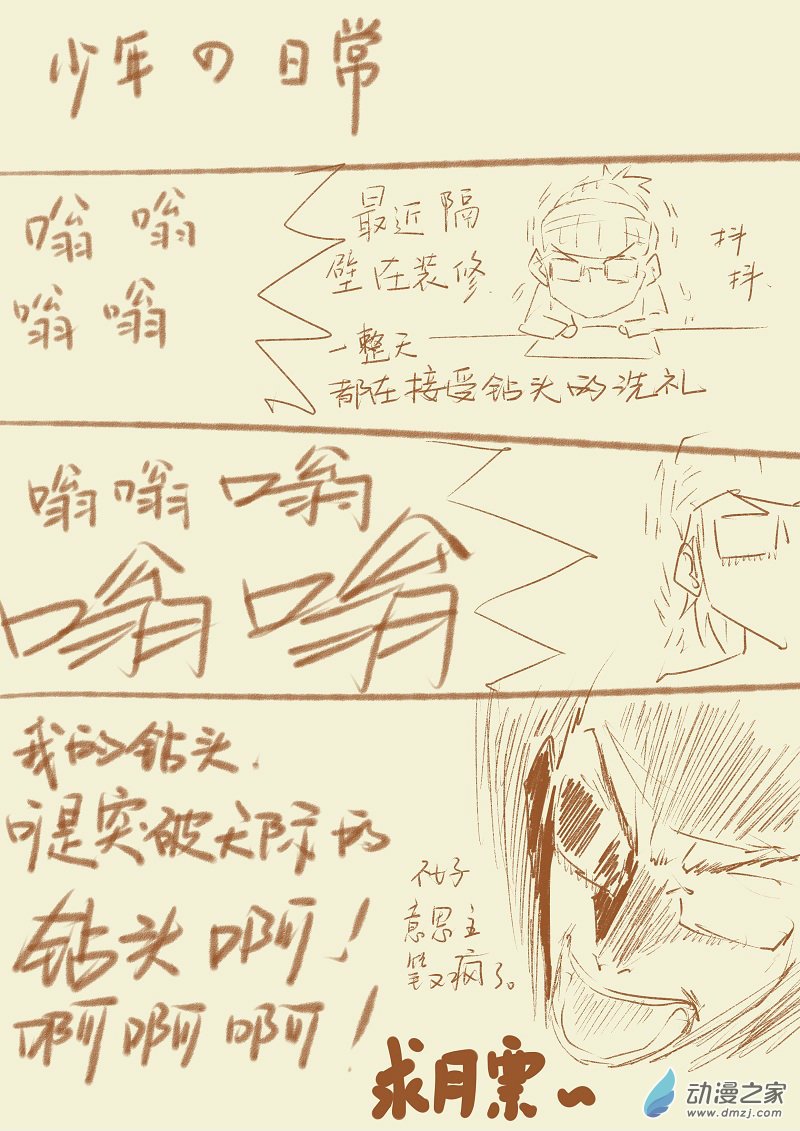 少年の日常
嗡 嗡
嗡 嗡
最近隔
壁在装修.
一整天
都在接受钻头的洗礼
抖
抖.
嗡 嗡 嗡
嗡 嗡
我的钻头.
可是突破天际的
钻头啊！
啊啊啊！
不好
意思主
笔又疯了。
求月票~
动漫之家
www.dmzj.com